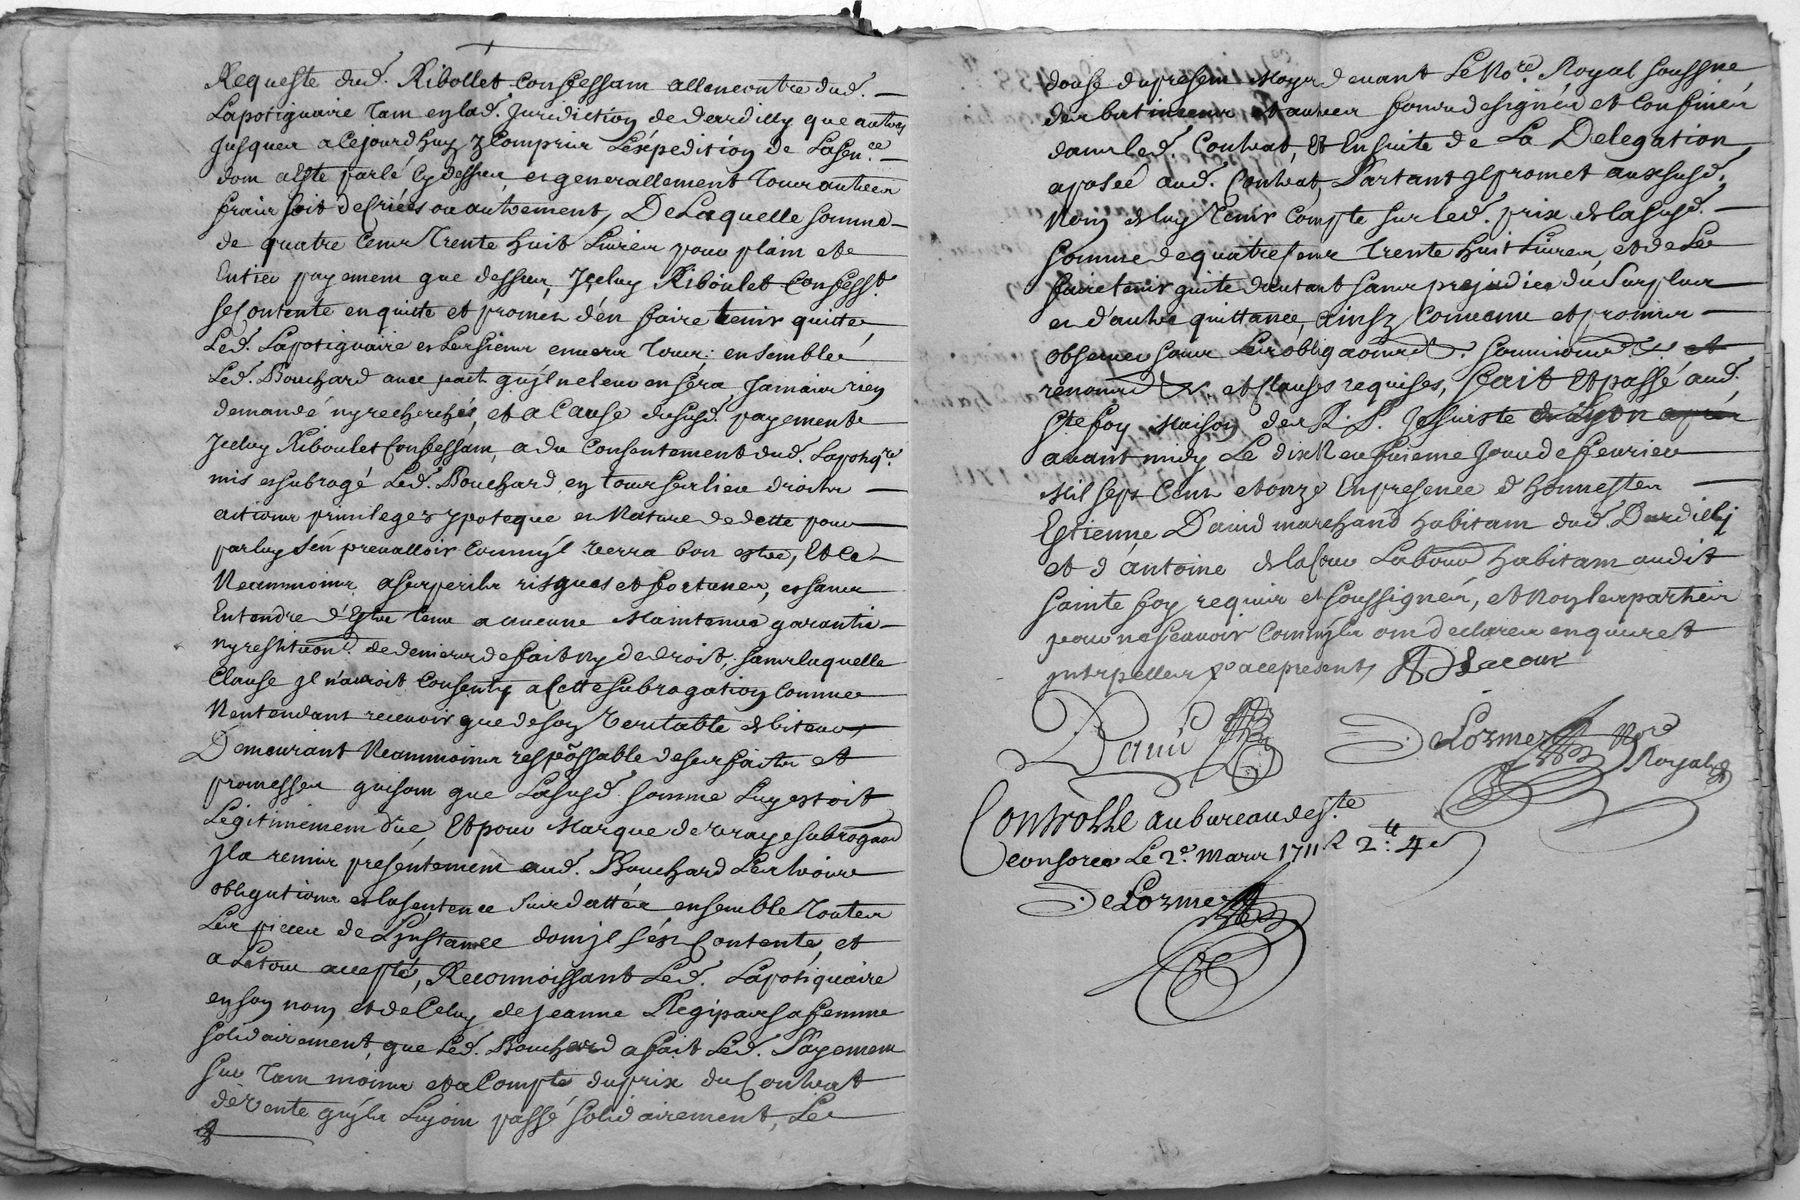 Requeste dud. Ribollet Confessam allencontre dud.
Lapotiquaire Tam en lad. Juridiction de dardilly que autres
Jusques a Cejourdhuy y Compris L'éxpedition de La Sence.
dom a este parlé Cy dessus, et generallement Tous autres
fraix soit de Criées ou autrement, De Laquelle somme
de quatre Cens Trente huit Livres pour plain et
Entier payement que dessus, Jceluy Riboulet Confesst.
se Contente en quitte et promet d'en faire tenir quitte
Led. Lapotiquaire et Les siens envers Tous; ensemble
Led. Bouchard avec pact quyl ne leur en sera Jamais rien
demandé ny recherché, et a Cause dusd. payement
Jceluy Riboulet Confessam, a du Consentement dud. Lapotiqre.
mis et subrogé Led. Bouchard en tous ses lieu droits
actions privileges ypoteque et Nature de dette pour
par luy s'en prevalloir Comm'jl verra bon estre, Et Ce
Neammoins a ses perils risques et fortunes, et sans
Entendre d'Estre tenu a aucune Maintenue garantie
ny restitution de deniers de fait ny de droit, sans laquelle
Clause jl n'auroit Consenty a Cette subrogation Comme
N'entendant recevoir que de son veritable debiteur
Demeurant Neammoins respoñssable de ses faits et
promesses quisom que La susd. somme Luy estoit
Legitimement düe, Et pour Marque de vraye subrogaon
Jl a remis presentement aud. Bouchard Les
obligations et la sentence susdattées ensemble Toutes
Les pieces de L'jnstance domjl s'est Contenté, et
a Le tout accepté, Reconnoissant Led. Lapotiquaire
en son nom et de Celuy de Jeanne Regipas sa femme
solidairement, que Led. Bouchard a fait Led. Payement
sur Tam moins et a Compte du prix du Contrat
de vente qu'jls Luy om passé solidairement, Le
douse du present Moys devant Le Nore. Royal soussigné
des batimens et autres fonds designés et Confinés
dans led. Contrat, Et Ensuite de La Delegation
aposée aud. Contrat, Partant jl promet aux susd.
Nom de luy Tenir Compte sur led. prix de la susd.
somme de quatre Cens Trente huit Livres, et de Le
faire tenir quitte d'autant sans prejudice du surplus
et d'autre quittance, Ainsy Convenu et promis
observer sous Les obligaons. soumions. &.
renond. &. et Clauses requises, fait Et passé aud.
Ste foy Maison des R. P. Jesuiste de Lyon apres
avant midy Le dix Neufvieme Jour de fevrier
Mil sept Cent et onze En presence d'honnestes
Estienne David marchand habitam dud. Dardilly
et d'antoine de la Cour Labour habitam audit
Sainte foy requis et soussignés, et Non les parties
pour ne sçavoir Comm'jls om declares enquis et
jnterpellés ace present, Delacour
David
DeLorme Nore Royal
Controllé au bureau de Ste
Consorce Le 2e. Mars 1711 R 2 tt 4 s
DeLorme